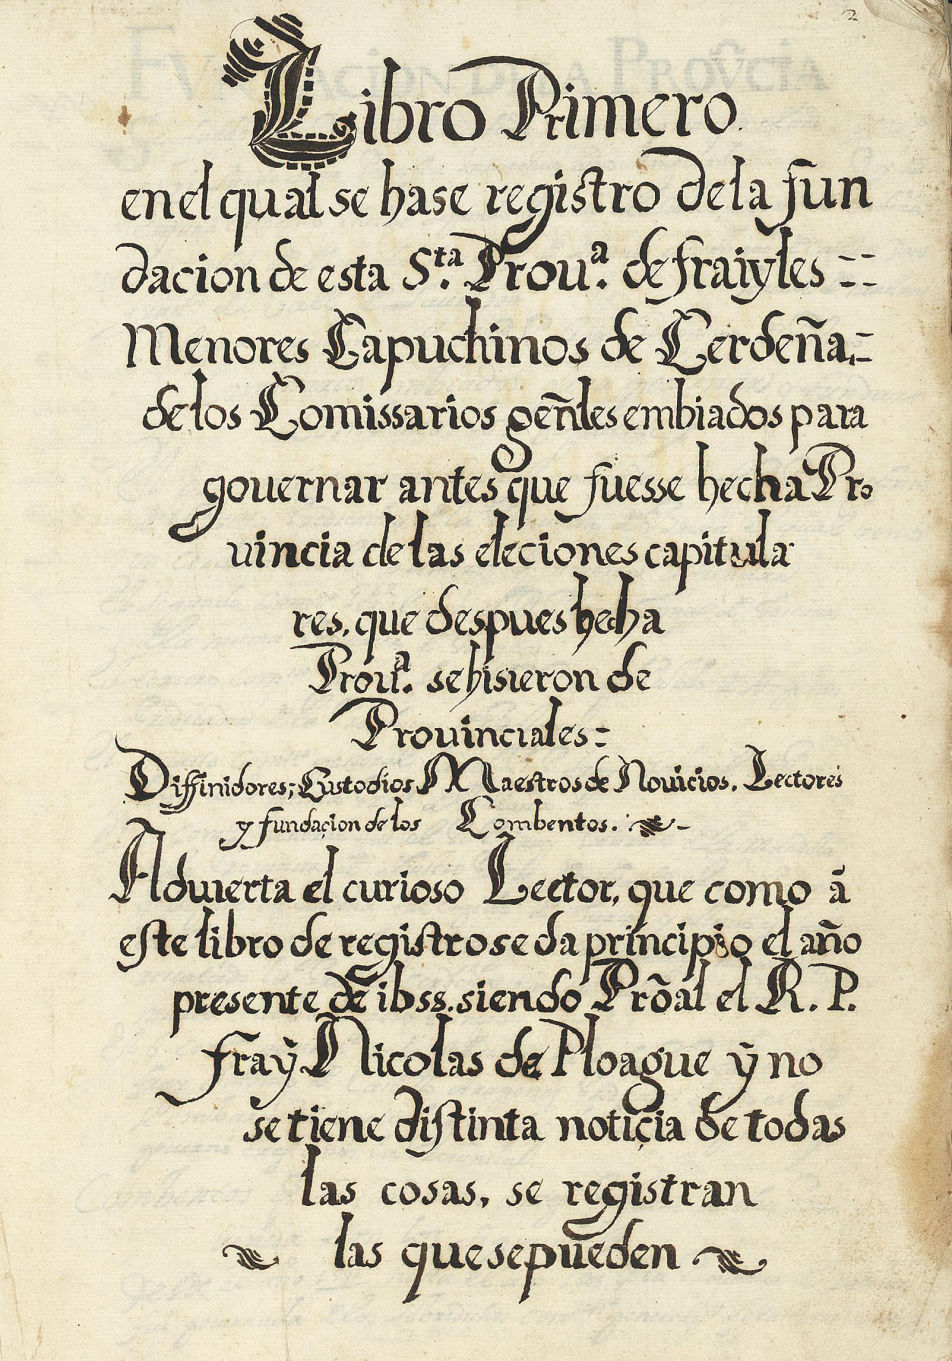 2
Libro Primero.
en el qual se hase registro de la fun
dacion de esta S.ta Prou.a de frayles --
Menores Capuchinos de Cerdeña,-
de los Comissarios geñles embiados para
governar antes que fuesse hecha Pro
uincia de las eleciones capitula
res, que despues hecha
Prou.a se hisieron de
Prouinciales:
Diffinidores; Custodios Maestros de Novicios. Lectores
y fundaçion de los Combentos.
Aduierta el curioso Lector, que como ã
este libro de registro se da principio el año
presente de 1655. siendo Prõal el R. P.
fray Nicolas de Ploague ÿ no
se tiene distinta notiçia de todas
las cosas, se registran
las que se pueden